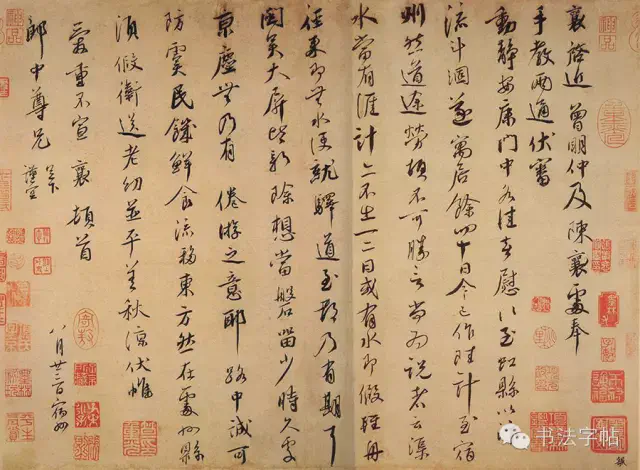 襄啓近曾明仲及陳襄處奉
手教兩通伏審
動靜安康門中各佳喜慰以至虹縣以汴
流斗涸遂寓居餘四十日今已作陸計至宿
州然道途勞頓不可勝言尚為說者云渠
水當有涯計亦不出一二日或有水即假輕舟
徑來即無水便就驛道至都乃有期耳
閩吳大屏皆新除想當磐留少時久處
京塵無乃有倦游之意耶路中誠可
防虞民饑鮮食流移東方然在處州縣
須假衛送老幼並平善秋涼伏惟
愛重不宣襄頓首
郎中尊兄足下
謹空
八月廿二日宿州
书法字帖